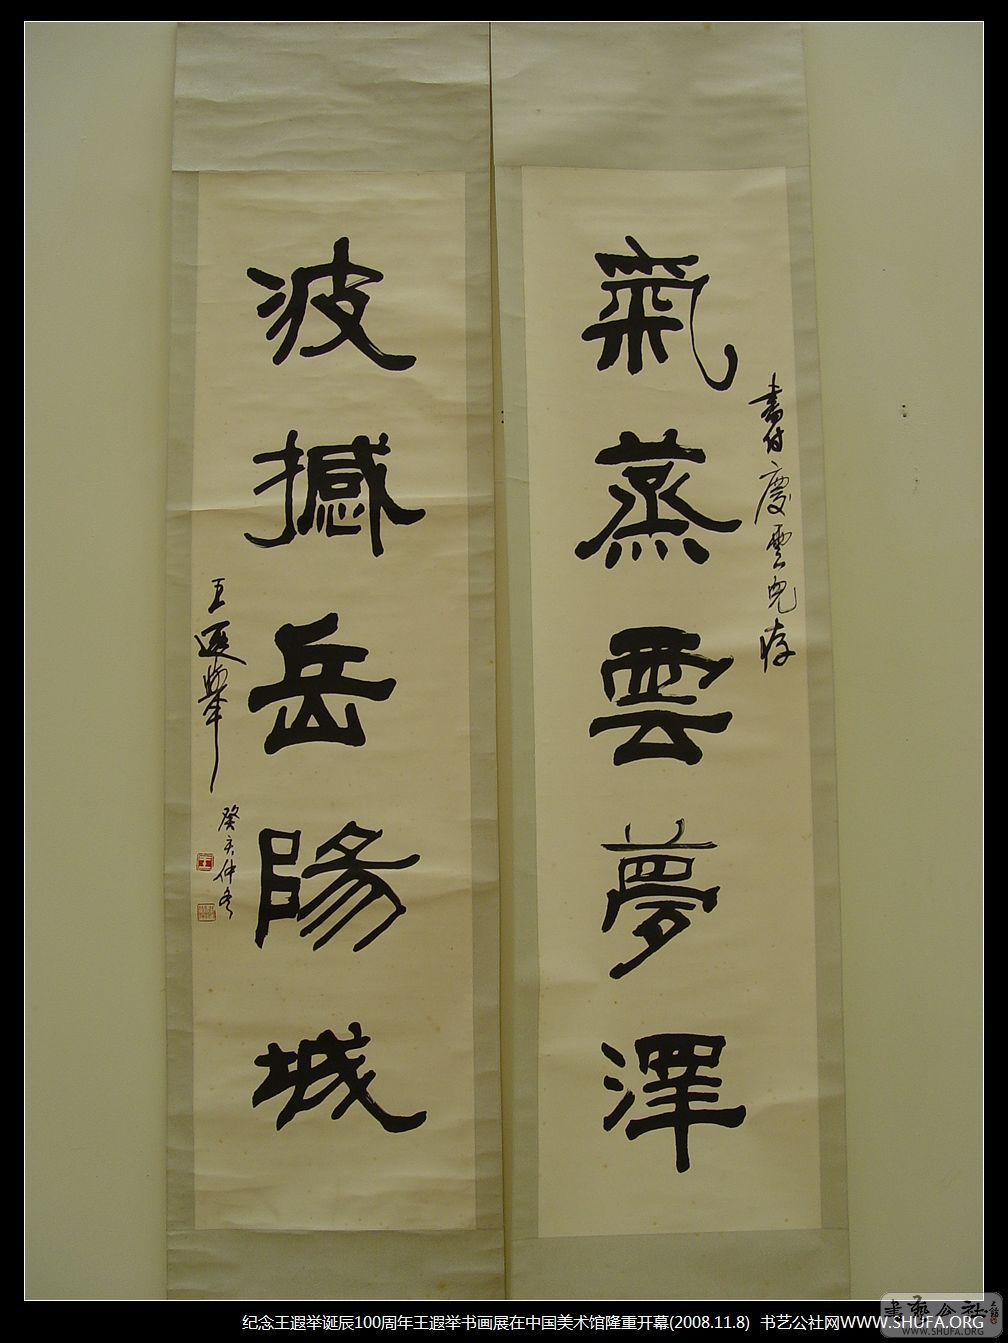 氣蒸雲夢澤
書付慶雲兒存
波撼岳陽城
王遐舉
癸亥仲冬
纪念王遐举诞辰100周年王遐举书画展在中国美术馆隆重开幕(2008.11.8) 书艺公社网WWW.SHUFA.ORG
書藝公社
WWW.SHUFA.ORG